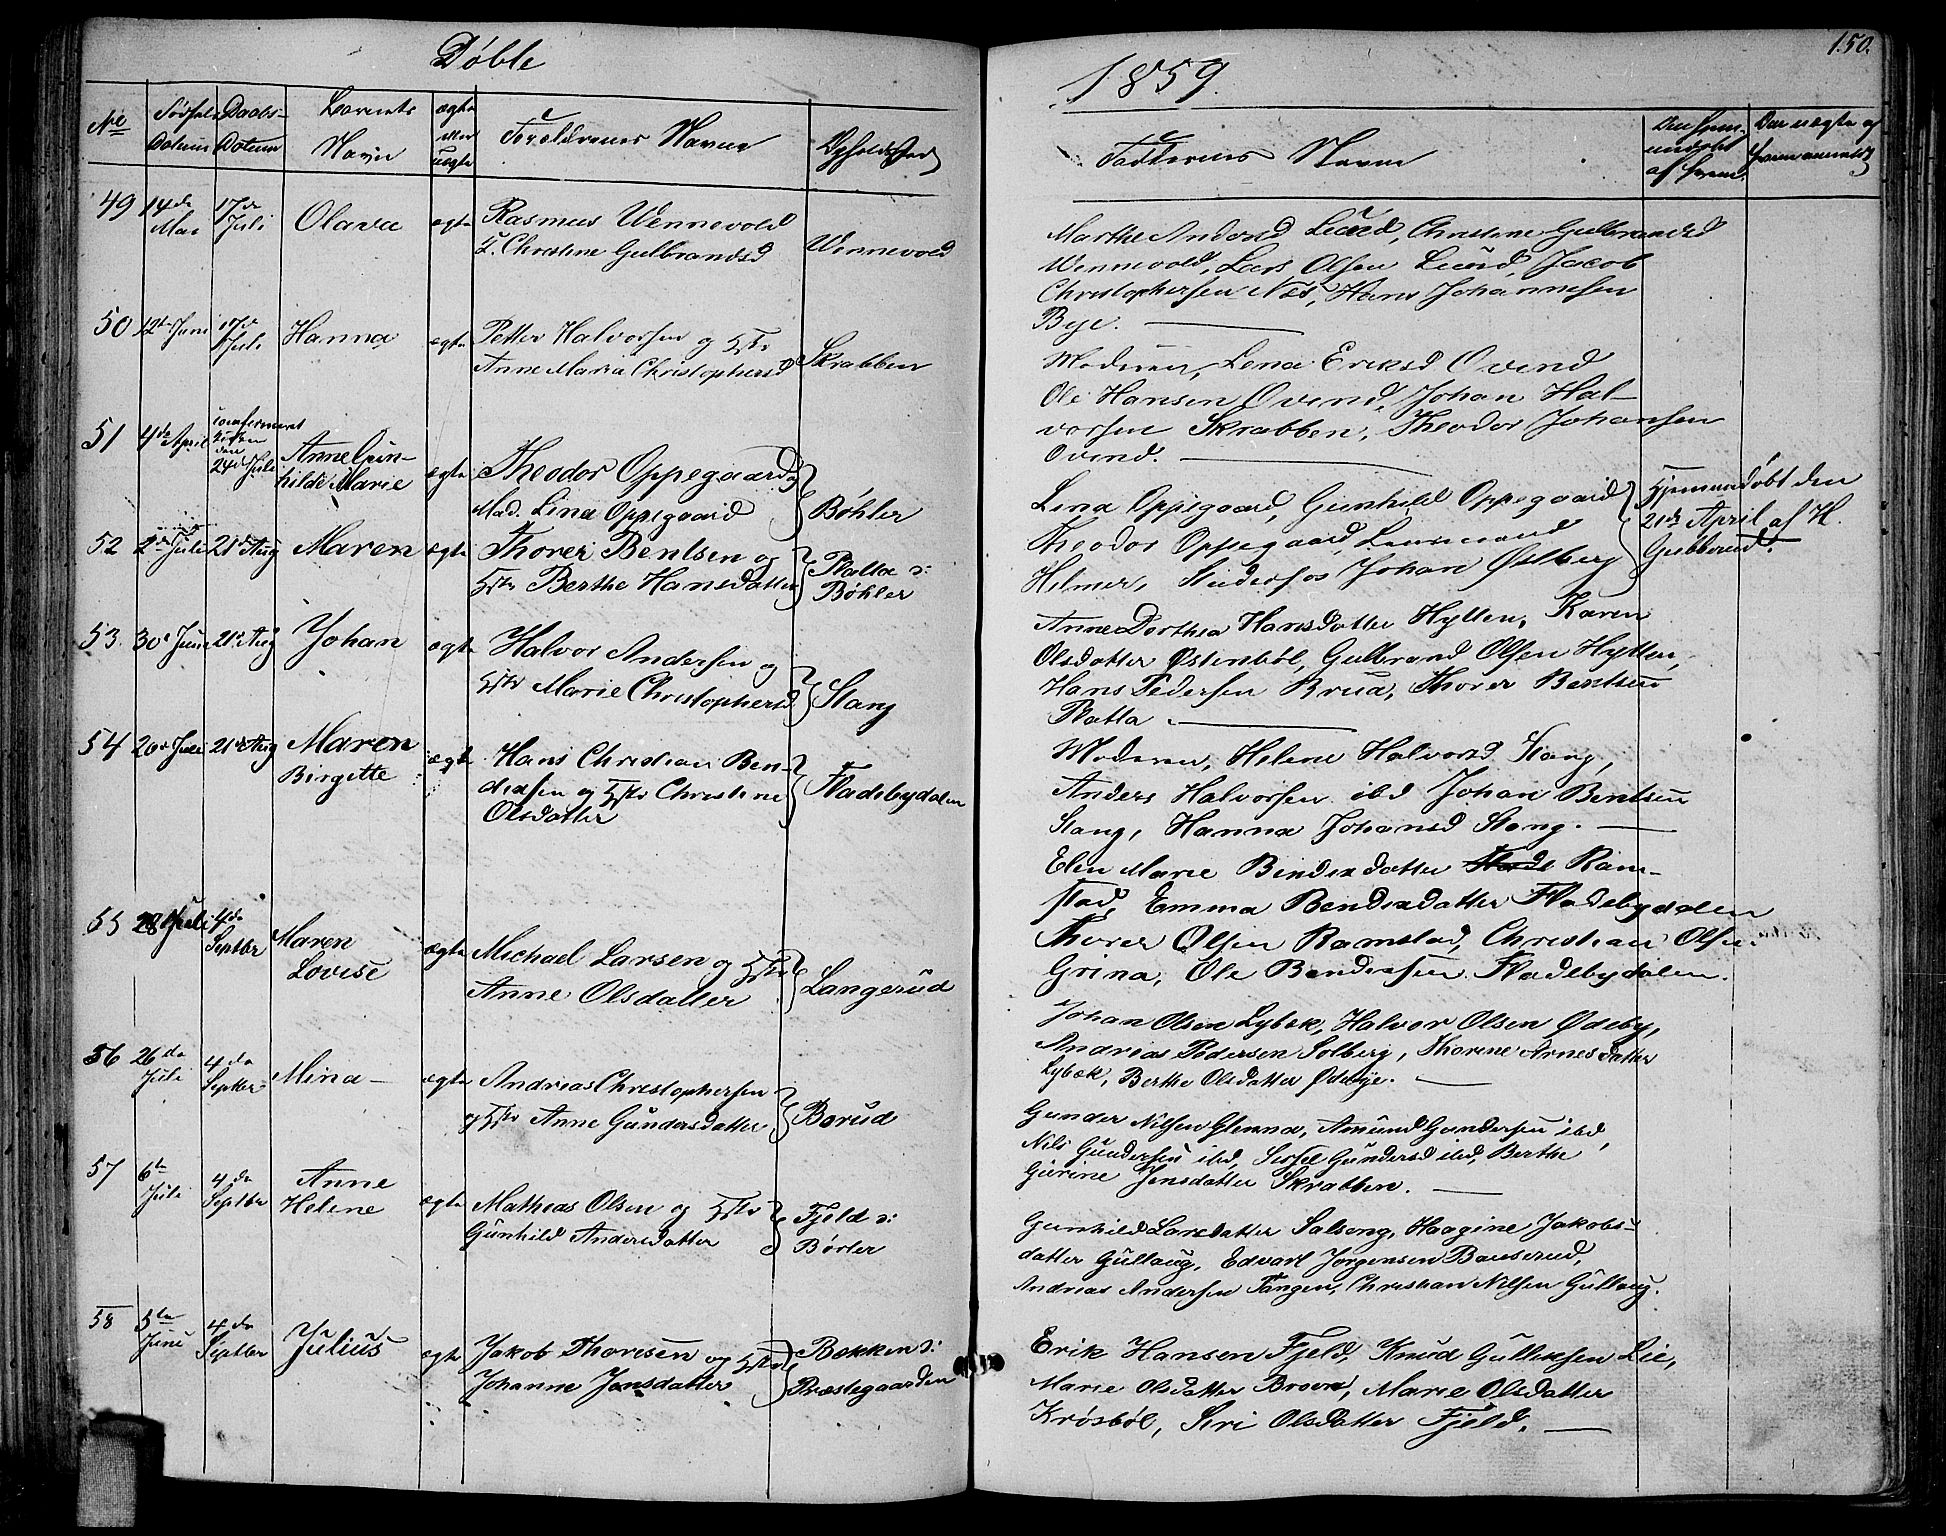 Døbte
No
Fødsels Datum
Daabs- Datum
Barnets Navn
ægte eller uægte
Forældrenes Navne
Opholdssted
49 14de Mai 17de Juli Olava ægte Rasmus Wennevold
Christine Gulbrandsd Wennevold
50 12te Juni 17de Juli Hanna ægte Petter Halvorsen og Hstr
Anne Maria Christophersd Skrabben
51 4de April confirmeret den 24de Juli Anne Gun-
hilde Marie ægte Theodor Oppegaard og
Mad. Lina Oppegaard Bøhler
52 2de Juli 21de Aug Maren ægte Thorer Bentsen og
Hstr Berthe Hansdatter Platta d: Bøhler
53 30te Juni 21de Aug Johan ægte Halvor Andersen og
Hstr Marie Christophersd Stang
54 20de Juli 21de Aug Maren
Birgitte ægte Hans Christian Ben-
dixsen og Hstr Christine
Olsdatter Fladebydalen
55 28 Juli 4de Septber Maren
Lovise ægte Michael Larsen og Hstr
Anne Olsdatter Langerud
56 26de Juli 4de Septber Mina- ægte Andreas Christophersen
og Hstr Anne Gundersdatter Borud
57 6te Juli 4de Septbr Anne
Helene ægte Mathias Olsen og Hstr
Gunhild Andersdatter Fjeld d: Børter
58 5te Juni 4de Septber Julius ægte Jakob Thoresen og Hstr
Johanne Jensdatter Bakken d: Præstegaarden
150.
1859.
Faddernes Navne
Den hjem- medøbt af hvem
Den uægte af hvem anmeldt
Marthe Andersd Lund, Christine Gulbrandsd
Wennevold, Lars Olsen Lund, Jacob
Christophersen Næs, Hans Johannesen
Bye.
Moderen, Lena Eriksd Ovind
Ole Hansen Ovind, Johan Hal-
vorsen Skrabben, Theodor Johansen
Ovind.
Lina Oppegaard, Gunhild Oppegaard
Theodor Oppegaard,
Helmer, Studiosos Johan Østberg
Hjemmedøbt den
21de April af H.
Gubberud.
Anne Dorthea Hansdatter Hytten, Karen
Olsdatter Østenbøl, Gulbrand Olsen Hytten,
Hans Pedersen Brua, Thorer Bentsen
Platta.
Moderen, Helene Halvorsd Stang,
Anders Halvorsen ibd Johan Bentsen
Stang, Hanna Johansd Stang.
Elen Marie Bendixdatter Ram-
stad, Emma Bendixdatter Fladebydalen
Thorer Olsen Ramstad, Christian Olsen
Grina, Ole Bendixsen Fladebydalen.
Johan Olsen Lybæk, Halvor Olsen Ødeby,
Andreas Pedersen Solberg, Thorine Arnesdatter
Lybæk, Berthe Olsdatter Ødebye.
Gunder Nilsen Glenna, Amund Gundersen ibd,
Nils Gundersen ibd, Sissel Gundersd ibd, Berthe
Gurine Jensdatter Skrabben.
Gunhild Larsdatter Salseng, Haagine Jakobs-
datter Gullaug, Edvart Jørgensen Bauserud,
Andreas Andersen Tangen, Christian Nilsen Gullaug.
Erik Hansen Fjeld, Knud Gulliksen Lie,
Marie Olsdatter Brovn, Marie Olsdatter
Krøsbøl, Siri Olsdatter Fjeld.